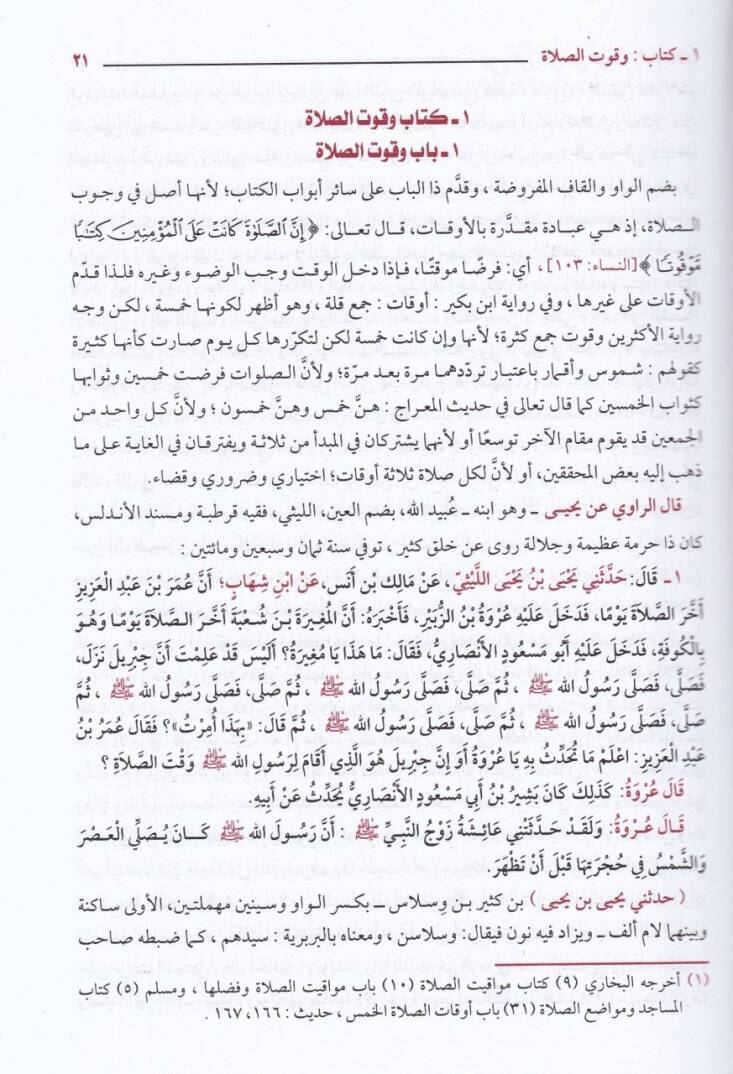 ١ ـ كتاب : وقوت الصلاة ٢١
١ ـ كتاب وقوت الصلاة
١ ـ باب وقوت الصلاة
بضم الواو والقاف المفروضة ، وقدَّم ذا الباب على سائر أبواب الكتاب؛ لأنها أصل في وجوب
الصلاة، إذ هي عبادة مقدَّرة بالأوقات، قال تعالى: ﴿ إِنَّ ٱلصَّلَوٰةَ كَانَتْ عَلَى ٱلْمُؤْمِنِينَ كِتَٰبًا
مَّوْقُوتًا ﴾ [النساء: ١٠٣]، أي: فرضًا موقتًا، فإذا دخل الوقت وجب الوضوء وغيره فلذا قدم
الأوقات على غيرها ، وفي رواية ابن بكير : أوقات : جمع قلة ، وهو أظهر لكونها خمسة ، لكن وجه
رواية الأكثرين وقوت جمع كثرة؛ لأنها وإن كانت خمسة لكن لتكرّرها كل يوم صارت كأنها كثيرة
كقولهم : شموس وأقمار باعتبار تردّدهما مرة بعد مرة؛ ولأنَّ الصلوات فرضت خمسين وثوابها
كثواب الخمسين كما قال تعالى في حديث المعراج : هنَّ خمس وهنَّ خمسون ؛ ولأنَّ كل واحد من
الجمعين قد يقوم مقام الآخر توسعًا أو لأنهما يشتركان في المبدأ من ثلاثة ويفترقان في الغاية على ما
ذهب إليه بعض المحققين، أو لأنَّ لكل صلاة ثلاثة أوقات؛ اختياري وضروري وقضاء.
قال الراوي عن يحيى ـ وهو ابنه ـ عُبيد الله، بضم العين، الليثي، فقيه قرطبة ومسند الأندلس،
كان ذا حرمة عظيمة وجلالة روى عن خلق كثير ، توفي سنة ثمان وسبعين ومائتين :
١ ـ قَالَ: حَدَّثَنِي يَحْيَى بْنُ يَحْيَى اللَّيْثِيُّ، عَنْ مَالِكِ بْنِ أَنَسٍ، عَنْ ابْنِ شِهَابٍ؛ أَنَّ عُمَرَ بْنَ عَبْدِ الْعَزِيزِ
أَخَّرَ الصَّلَاةَ يَوْمًا، فَدَخَلَ عَلَيْهِ عُرْوَةُ بْنُ الزُّبَيْرِ، فَأَخْبَرَهُ: أَنَّ الْمُغِيرَةَ بْنَ شُعْبَةَ أَخَّرَ الصَّلَاةَ يَوْمًا وَهُوَ
بِالْكُوفَةِ، فَدَخَلَ عَلَيْهِ أَبُو مَسْعُودٍ الْأَنْصَارِيُّ، فَقَالَ: مَا هَذَا يَا مُغِيرَةُ؟ أَلَيْسَ قَدْ عَلِمْتَ أَنَّ جِبْرِيلَ نَزَلَ،
فَصَلَّى، فَصَلَّى رَسُولُ الله ﷺ ، ثُمَّ صَلَّى، فَصَلَّى رَسُولُ الله ﷺ ، ثُمَّ صَلَّى، فَصَلَّى رَسُولُ الله ﷺ ، ثُمَّ
صَلَّى، فَصَلَّى رَسُولُ الله ﷺ ، ثُمَّ صَلَّى، فَصَلَّى رَسُولُ الله ﷺ ، ثُمَّ قَالَ: «بِهَذَا أُمِرْتُ»؟ فَقَالَ عُمَرُ بْنُ
عَبْدِ الْعَزِيزِ: اعْلَمْ مَا تُحَدِّثُ بِهِ يَا عُرْوَةُ أَوَ إِنَّ جِبْرِيلَ هُوَ الَّذِي أَقَامَ لِرَسُولِ الله ﷺ وَقْتَ الصَّلَاةِ ؟
قَالَ عُرْوَةُ: كَذَلِكَ كَانَ بَشِيرُ بْنُ أَبِي مَسْعُودٍ الْأَنْصَارِيُّ يُحَدِّثُ عَنْ أَبِيهِ.
قَالَ عُرْوَةُ: وَلَقَدْ حَدَّثَتْنِي عَائِشَةُ زَوْجُ النَّبِيِّ ﷺ : أَنَّ رَسُولَ الله ﷺ كَانَ يُصَلِّي الْعَصْرَ
وَالشَّمْسُ فِي حُجْرَتِهَا قَبْلَ أَنْ تَظْهَرَ.
(حدثني يحيى بن يحيى) بن كثير بن وسلاس ـ بكر الواو وسينين مهملتين، الأولى ساكنة
وبينهما لام ألف ـ ويزاد فيه نون فيقال: وسلاسن ، ومعناه بالبربرية : سيدهم ، كما ضبطه صاحب
(١) أخرجه البخاري (٩) كتاب مواقيت الصلاة (١٠) باب مواقيت الصلاة وفضلها ، ومسلم (٥) كتاب
المساجد ومواضع الصلاة (٣١) باب أوقات الصلاة الخمس ، حديث : ١٦٦، ١٦٧ .